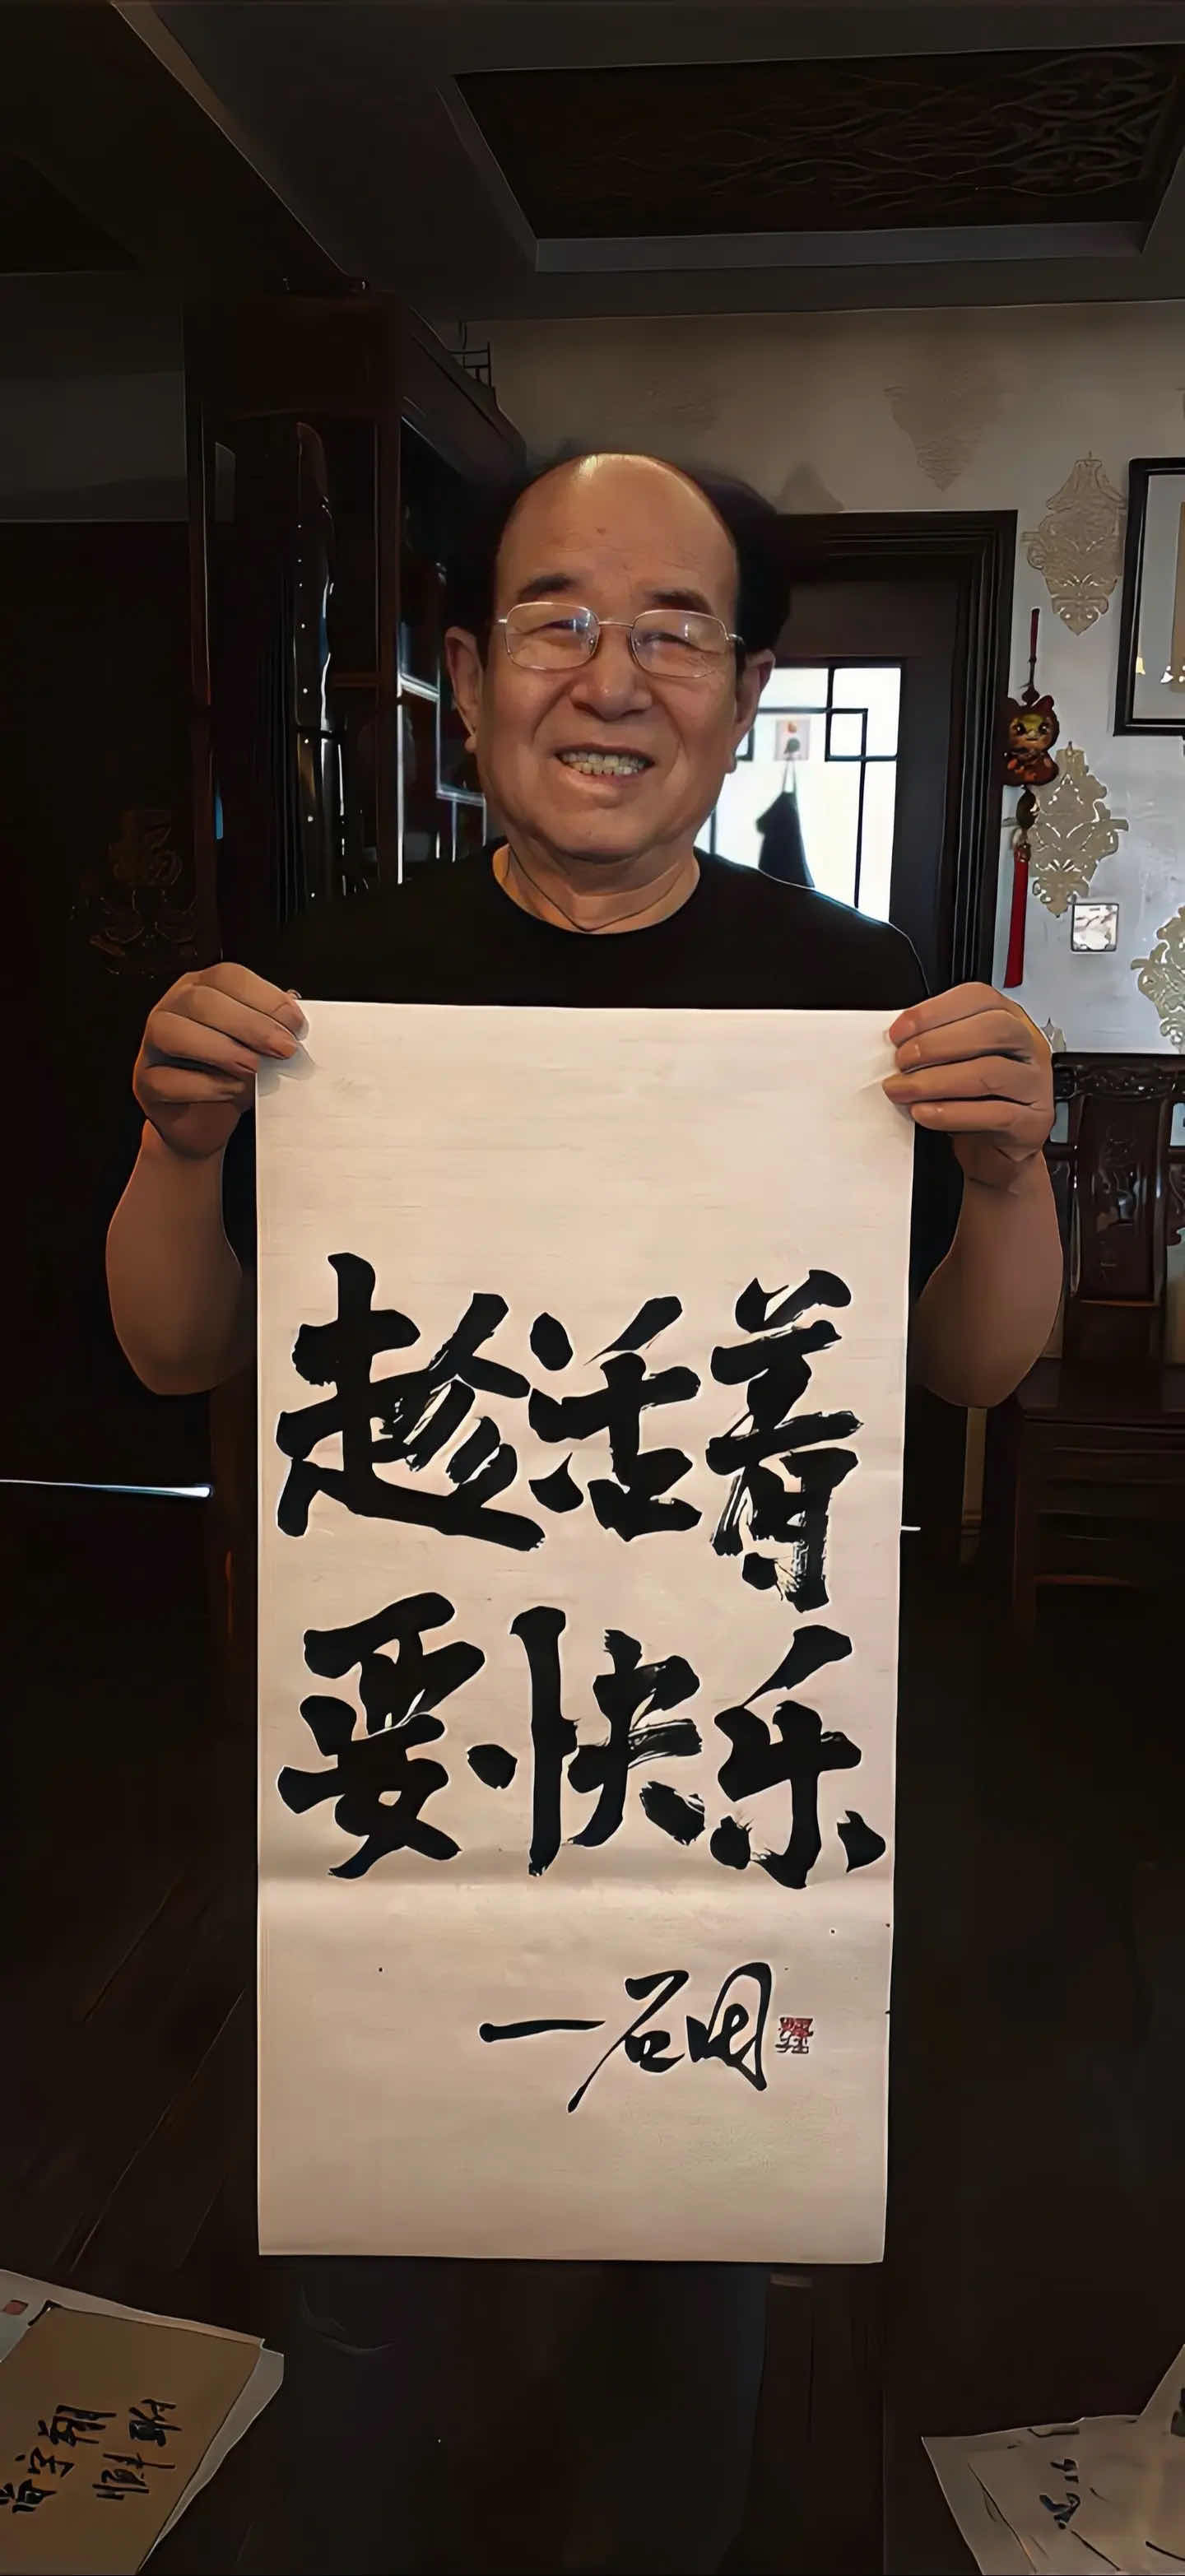 趁活着
要快乐
一石田